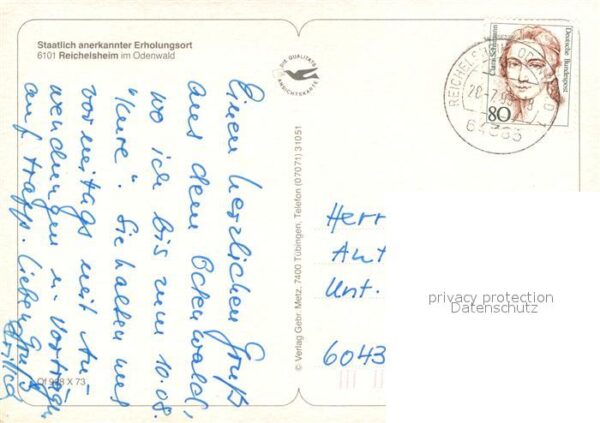 Staatlich anerkannter Erholungsort
6101 Reichelsheim im Odenwald
DIE QUALITÄTS
ANSICHTSKARTE
Einen herzlichen Gruß
aus dem Odenwald,
wo ich bis zum 10.08.
"Kure". Sie halten uns
vormittags mit An-
wendungen u. Vorträgen
auf Trapp. Liebe Grüße
© Verlag Gebr. Metz, 7400 Tübingen, Telefon (07071) 31051
Deutsche Bundespost
Clara Schumann
80
REICHELSHEIM, ODENWALD
64385
Herr
Amt
Unt.
6043
privacy protection
Datenschutz